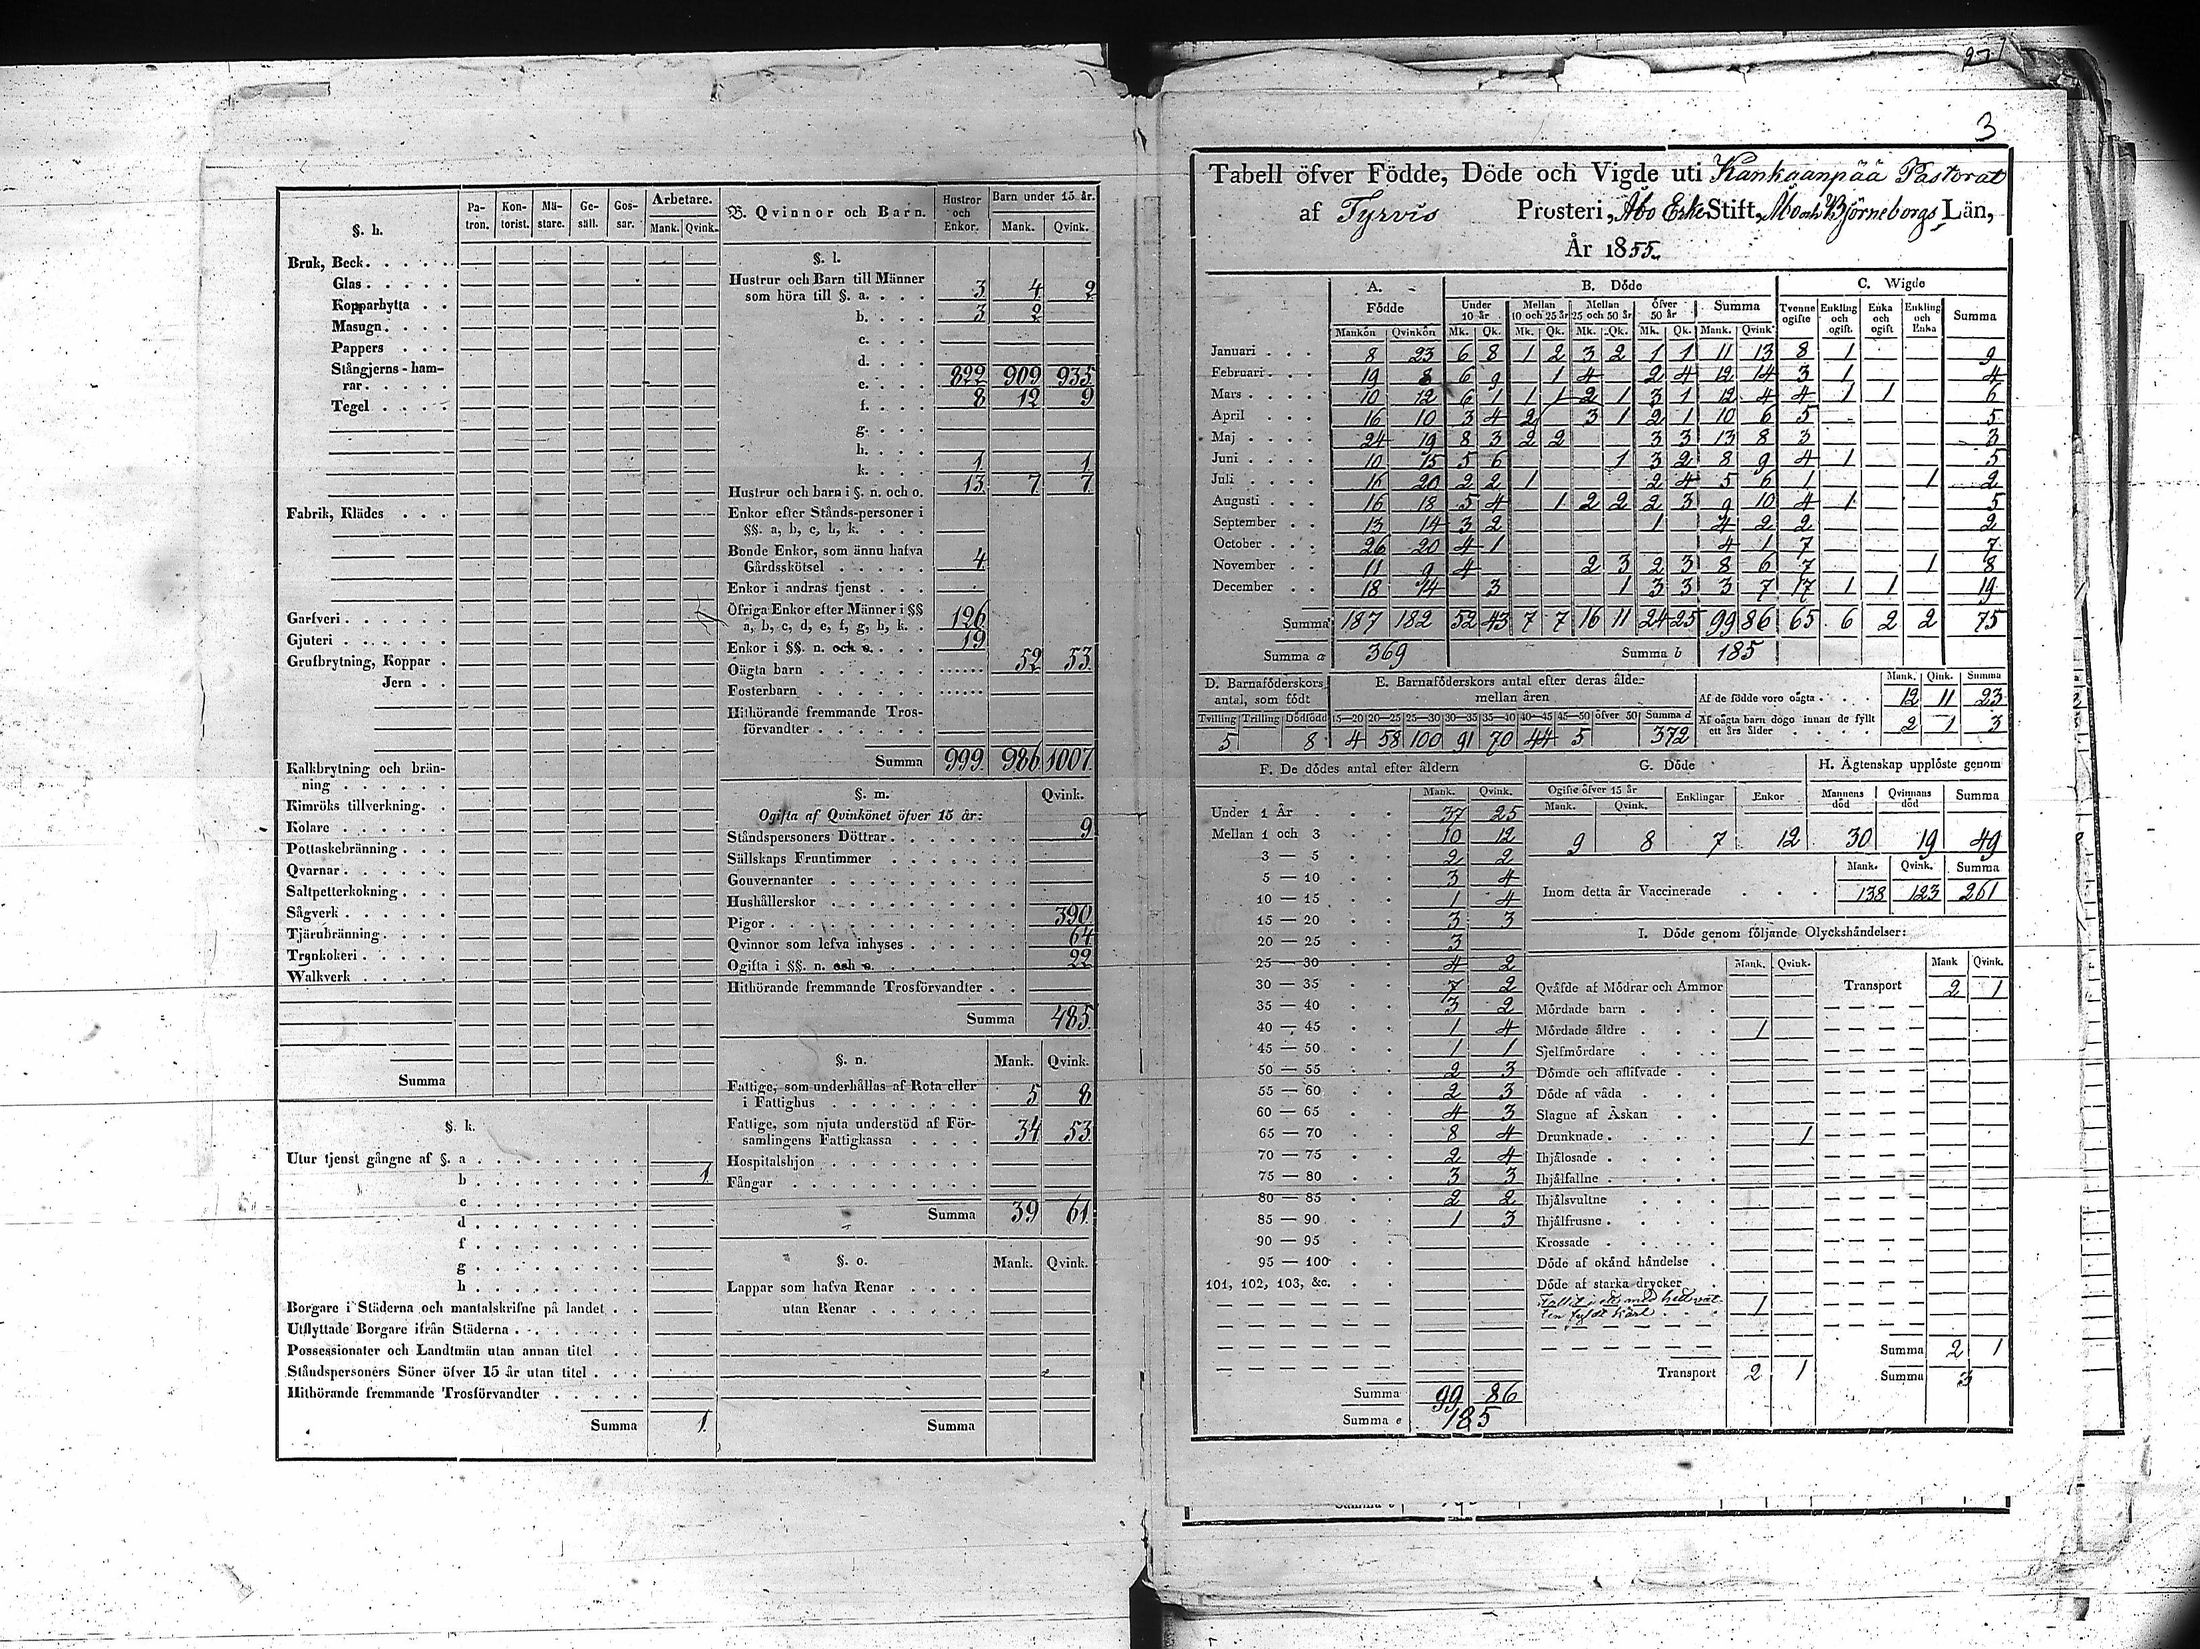 277
§. h.
Pa-tron. Kon-torist. Mä-stare. Ge-säll. Gos-sar. Arbetare. Mank. Qvink.
Bruk, Beck
Glas
Kopparhytta
Masugn
Pappers
Stångjerns-ham-
rar
Tegel
Fabrik, Klädes
Garfveri
Gjuteri
Grufbrytning, Koppar
Jern
Kalkbrytning och brän-
ning
Kimröks tillverkning
Kolare
Pottaskebränning
Qvarnar
Saltpetterkokning
Sågverk
Tjärubränning
Trankokeri
Walkverk
Summa
§. k.
Utur tjenst gångne af §. a
b 1
c
d
f
g
h
Borgare i Städerna och mantalskrifne på landet
Utflyttade Borgare ifrån Städerna
Possessionater och Landtmän utan annan titel
Ståndspersoners Söner öfver 15 år utan titel
Hithörande fremmande Trosförvandter
Summa 1
B. Qvinnor och Barn. Hustror och Enkor. Barn under 15 år. Mank. Qvink.
§. l.
Hustrur och Barn till Männer
som höra till §. a. 3 4 2
b. 3 2
c.
d.
e. 822 909 935
f. 8 12 9
g.
h.
k. 1 1
Hustrur och barn i §. n. och o. 13 7 7
Enkor efter Stånds-personer i
§§. a, b, c, h, k.
Bonde Enkor, som ännu hafva
Gårdsskötsel 4
Enkor i andras tjenst
Öfriga Enkor efter Männer i §§
a, b, c, d, e, f, g, h, k. 126
Enkor i §§. n. och o. 19
Oägta barn 52 53
Fosterbarn
Hithörande fremmande Tros-
förvandter
Summa 999 986 1007
§. m. Qvink.
Ogifta af Qvinkönet öfver 15 år:
Ståndspersoners Döttrar 9
Sällskaps Fruntimmer
Gouvernanter
Hushållerskor
Pigor 390
Qvinnor som lefva inhyses 64
Ogifta i §§. n. och o. 22
Hithörande fremmande Trosförvandter
Summa 485
§. n. Mank. Qvink.
Fattige, som underhållas af Rota eller
i Fattighus 5 8
Fattige, som njuta understöd af För-
samlingens Fattigkassa 34 53
Hospitalshjon
Fångar
Summa 39 61
§. o. Mank. Qvink.
Lappar som hafva Renar
utan Renar
Summa
3
Tabell öfver Födde, Döde och Vigde uti Kankaanpää Pastorat
af Tyrvis Prosteri, Åbo Erke Stift, Åbo och Björneborgs Län,
År 1855.
A. Födde B. Döde C. Wigde
Mankön Qvinkön Under 10 år Mellan 10 och 25 år Mellan 25 och 50 år Öfver 50 år Summa Tvenne ogifte Enkling och ogift. Enka och ogift Enkling och Enka Summa
Mk. Qk. Mk. Qk. Mk. Qk. Mk. Qk. Mank. Qvink.
Januari 8 23 6 8 1 2 3 2 1 1 11 13 8 1 9
Februari 19 8 6 9 1 4 2 4 12 14 3 1 4
Mars 10 12 6 1 1 1 2 1 3 1 12 4 4 1 1 6
April 16 10 3 4 2 3 1 2 1 10 6 5 5
Maj 24 19 8 3 2 2 3 3 13 8 3 3
Juni 10 15 5 6 1 3 2 8 9 4 1 5
Juli 16 20 2 2 1 2 4 5 6 1 1 2
Augusti 16 18 5 4 1 2 2 2 3 9 10 4 1 5
September 13 14 3 2 1 4 2 2 2
October 26 20 4 1 4 1 7 7
November 11 9 4 2 3 2 3 8 6 7 1 8
December 18 14 3 1 3 3 3 7 17 1 1 19
Summa 187 182 52 43 7 7 16 11 24 25 99 86 65 6 2 2 75
Summa a 369 Summa b 185
D. Barnaföderskors antal, som födt
Tvilling Trilling Dödfödd
5 8
E. Barnaföderskors antal efter deras ålder mellan åren
15—20 20—25 25—30 30—35 35—40 40—45 45—50 öfver 50 Summa d
4 58 100 91 70 44 5 372
Mank. Qink. Summa
Af de födde voro oägta 12 11 23
Af oägta barn dogo innan de fyllt
ett års ålder 2 1 3
F. De dödes antal efter åldern
Mank. Qvink.
Under 1 År 37 25
Mellan 1 och 3 10 12
3 — 5 2 2
5 — 10 3 4
10 — 15 1 4
15 — 20 3 3
20 — 25 3
25 — 30 4 2
30 — 35 7 2
35 — 40 3 2
40 — 45 1 4
45 — 50 1 1
50 — 55 2 3
55 — 60 2 3
60 — 65 4 3
65 — 70 8 4
70 — 75 2 4
75 — 80 3 3
80 — 85 2 2
85 — 90 1 3
90 — 95
95 — 100
101, 102, 103, &c.
Summa 99 86
Summa e 185
G. Döde
Ogifte öfver 15 år Mank. Qvink. Enklingar Enkor
9 8 7 12
H. Ägtenskap upplöste genom
Mannens död Qvinnans död Summa
30 19 49
Mank. Qvink. Summa
Inom detta år Vaccinerade 138 123 261
I. Döde genom följande Olyckshändelser:
Mank. Qvink. Mank Qvink.
Qväfde af Mödrar och Ammor
Mördade barn
Mördade äldre 1
Sjelfmördare
Dömde och aflifvade
Döde af våda
Slagne af Åskan
Drunknade 1
Ihjälosade
Ihjälfallne
Ihjälsvultne
Ihjälfrusne
Krossade
Döde af okänd händelse
Döde af starka drycker
Fallit i ett med hett vat-
ten fyldt kärl 1
Transport 2 1
Transport 2 1
Summa 2 1
Summa 3